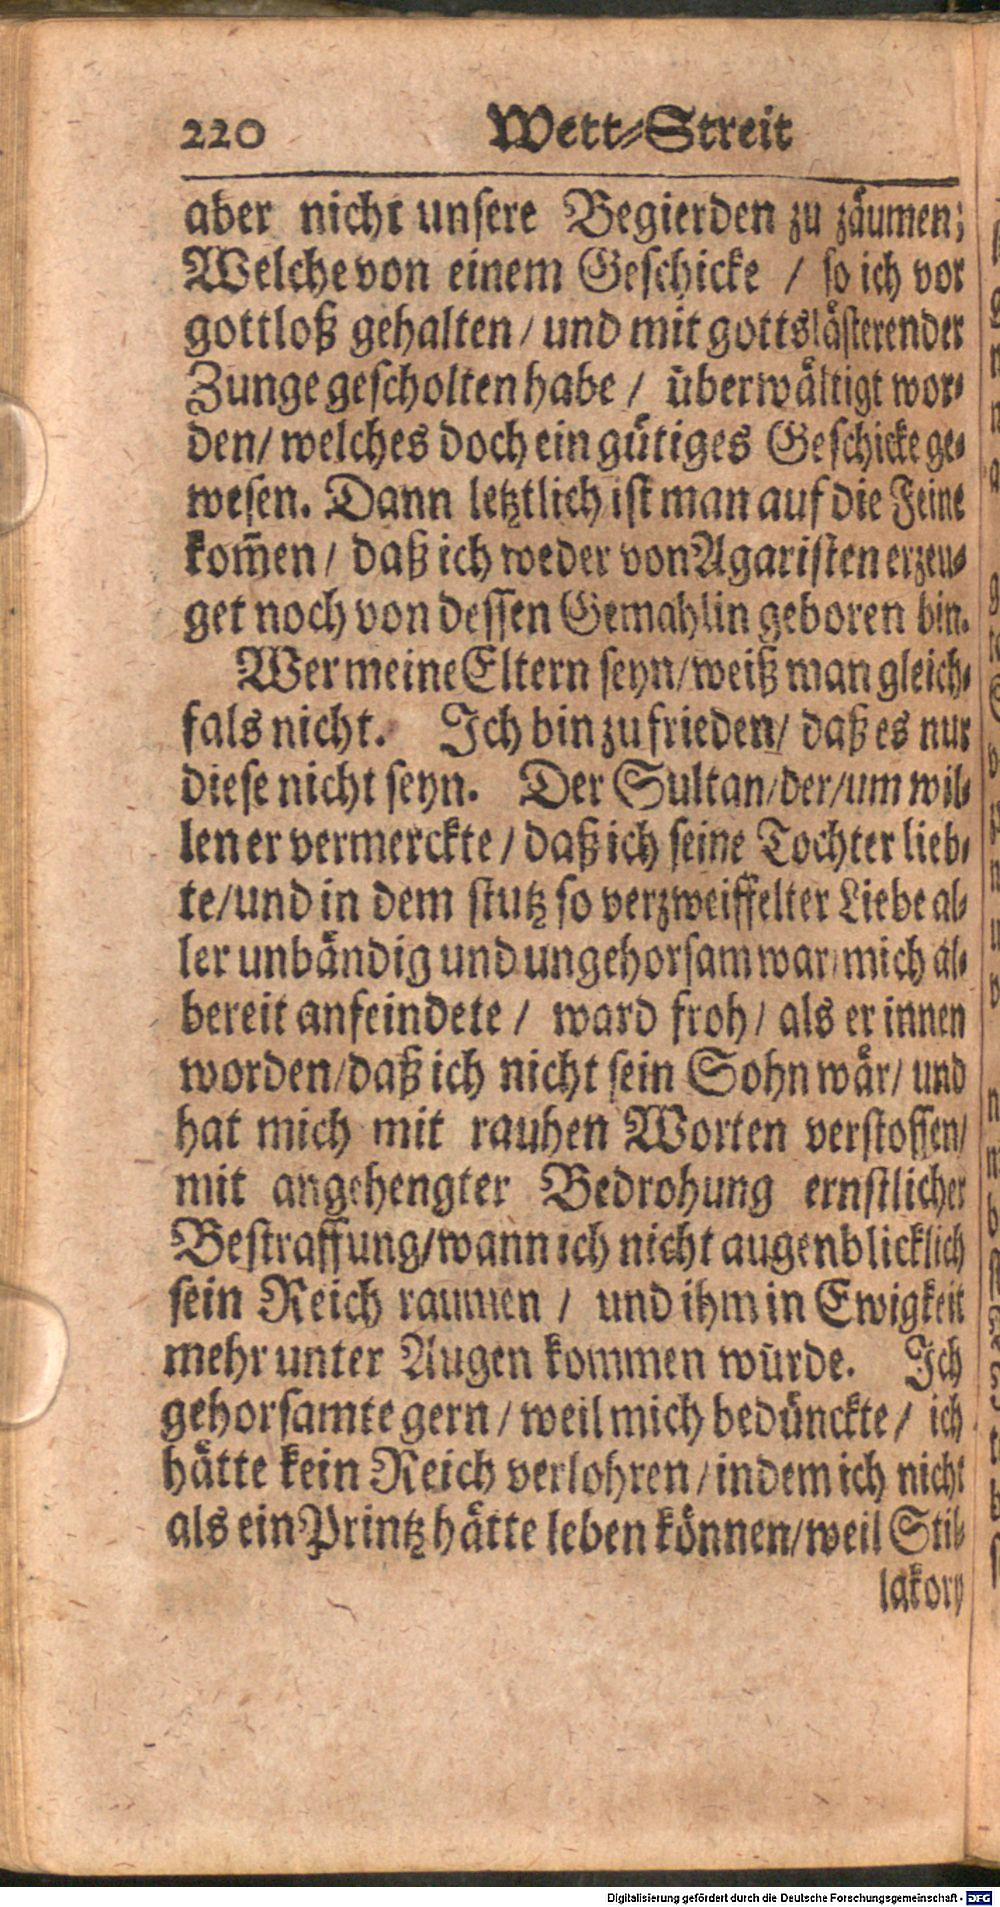 220 Wett-Streit
aber nicht unsere Begierden zu zäumen;
Welche von einem Geschicke / so ich vor
gottloß gehalten / und mit gottslästerender
Zunge gescholten habe / überwältigt wor-
den / welches doch ein gütiges Geschicke ge-
wesen. Dann letztlich ist man auf die Feine
kom̃en / daß ich weder von Agaristen erzeu-
get noch von dessen Gemahlin geboren bin.
Wer meine Eltern seyn / weiß man gleich-
fals nicht. Ich bin zu frieden / daß es nur
diese nicht seyn. Der Sultan / der / um wil-
len er vermerckte / daß ich seine Tochter lieb-
te / und in dem stutz so verzweiffelter Liebe al-
ler unbändig und ungehorsam war / mich al-
bereit anfeindete / ward froh / als er innen
worden / daß ich nicht sein Sohn wär / und
hat mich mit rauhen Worten verstossen /
mit angehengter Bedrohung ernstlicher
Bestraffung / wann ich nicht augenblicklich
sein Reich raumen / und ihm in Ewigkeit
mehr unter Augen kommen würde. Ich
gehorsamte gern / weil mich bedünckte / ich
hätte kein Reich verlohren / indem ich nicht
als ein Printz hätte leben können / weil Stil-
lakory
Digitalisierung gefördert durch die Deutsche Forschungsgemeinschaft - DFG